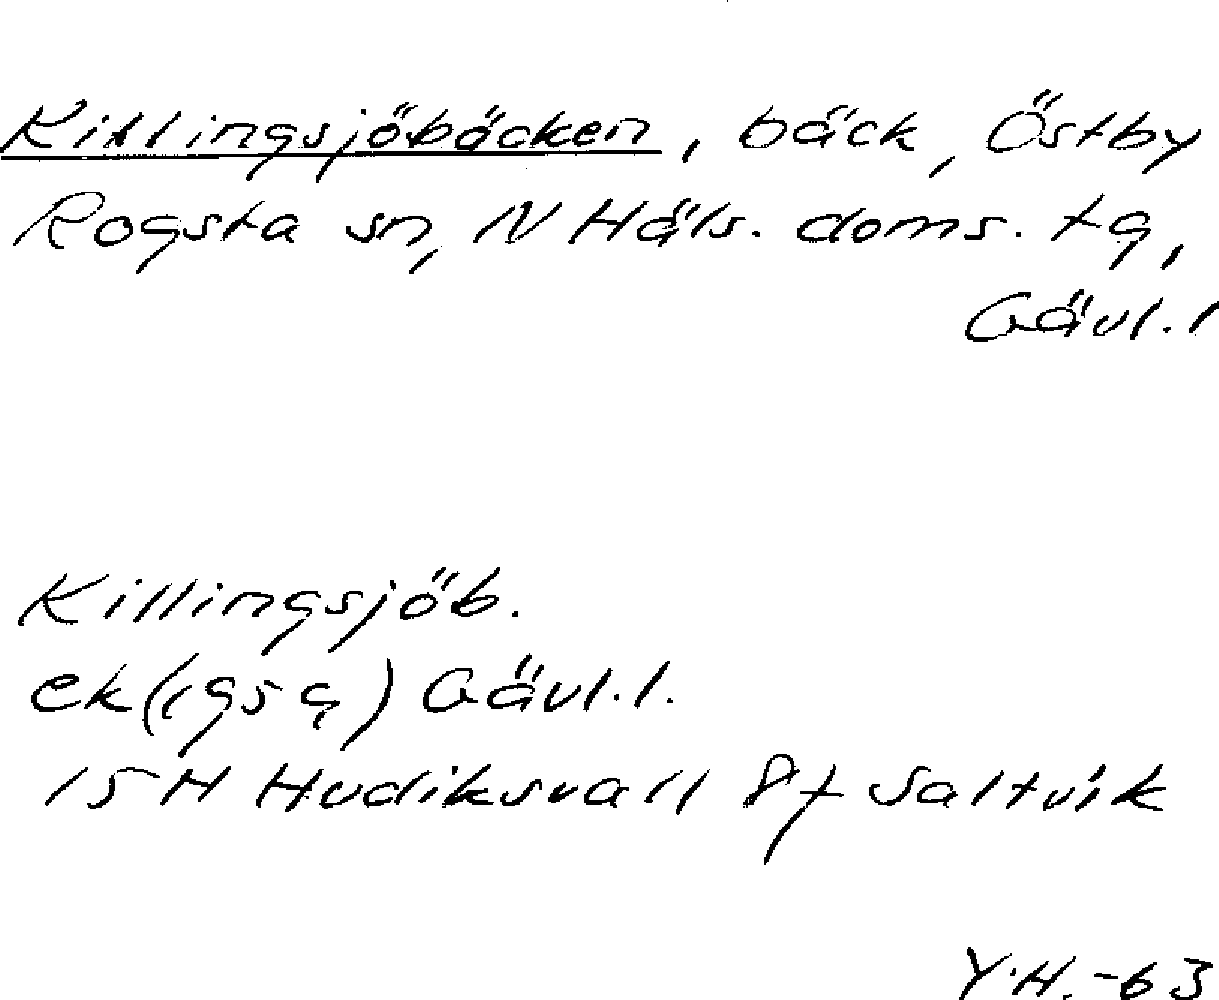 Killingsjöbäcken, bäck, Östby
Rogsta sn, N Häls. doms. tg,
Gävl. l
Killingsjöb.
ek (1959) Gävl. l.
15H Hudiksvall 8f Saltvik
Y.H. -63